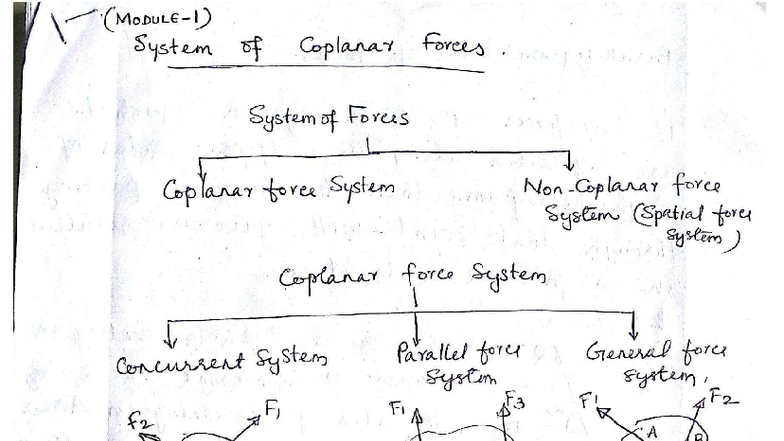 (MODULE-1)
System of Coplanar Forces.
System of Forces
Coplanar force System
Non-Coplanar force
System (Spatial force
System)
Coplanar force System
Concurrent System
Parallel force
System
General force
System,
F2
F1
F1
F3
F1
F2
A
B